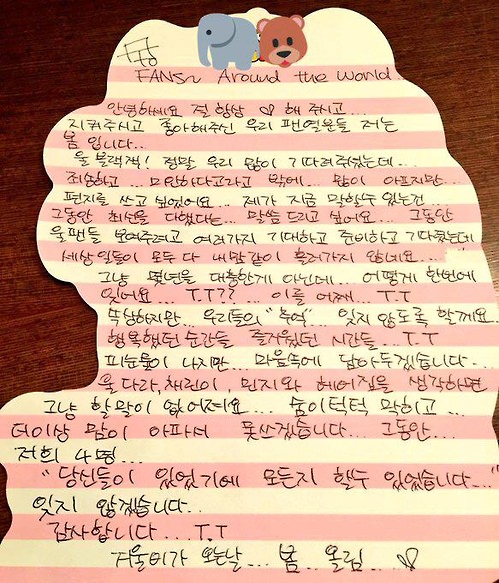 FANS~ Around the World.
안녕하세요 절 항상 ♡ 해 주시고...
지켜주시고 좋아해주신 우리 팬 여러분들 저는
봄 입니다...
울 블랙잭! 정말 우리 많이 기다려주셨는데...
죄송하고... 미안하다고라고 밖에... 많이 아프지만...
편지를 쓰고 싶었어요... 제가 지금 말할수 있는건...
그동안 최선을 다했다는... 말씀 드리고 싶어요... 그동안
울팬들 보여주려고 여러가지 기대하고 준비하고 기다렸는데
세상일들이 모두 다 내맘같이 흘러가지 않네요...
그냥 몇년을 대충한게 아닌데... 어떻게 한번에
잊어요... T.T?? ... 이를 어째... T.T
속상하지만... 우리들의 "추억"... 잊지 않도록 할께요..
행복했던 순간들 즐거웠던 시간들... T.T
피눈물이 나지만... 마음속에 담아두겠습니다..
울 다라, 채린이, 민지와 헤어짐을 생각하면
그냥 할말이 없어져요... 숨이턱턱 막히고...
더이상 맘이 아파서 못쓰겠습니다... 그동안...
저희 4명...
"당신들이 있었기에 모든지 할수 있었습니다..."
잊지 않겠습니다..
감사합니다... T.T
겨울비가 오는날... 봄.. 올림... ♡